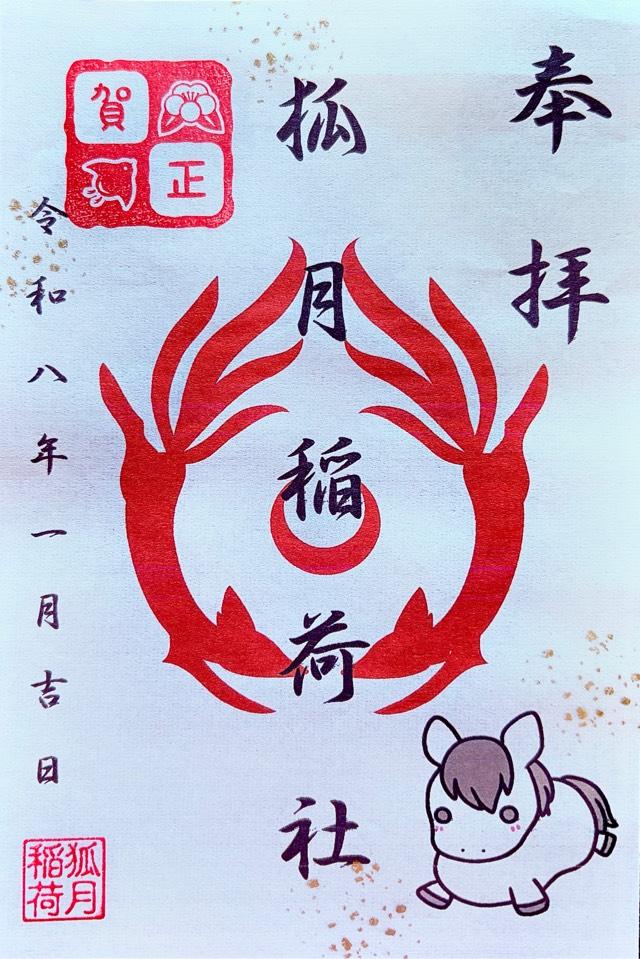 奉拝
狐月稲荷社
賀正
令和八年一月吉日
狐月
稲荷